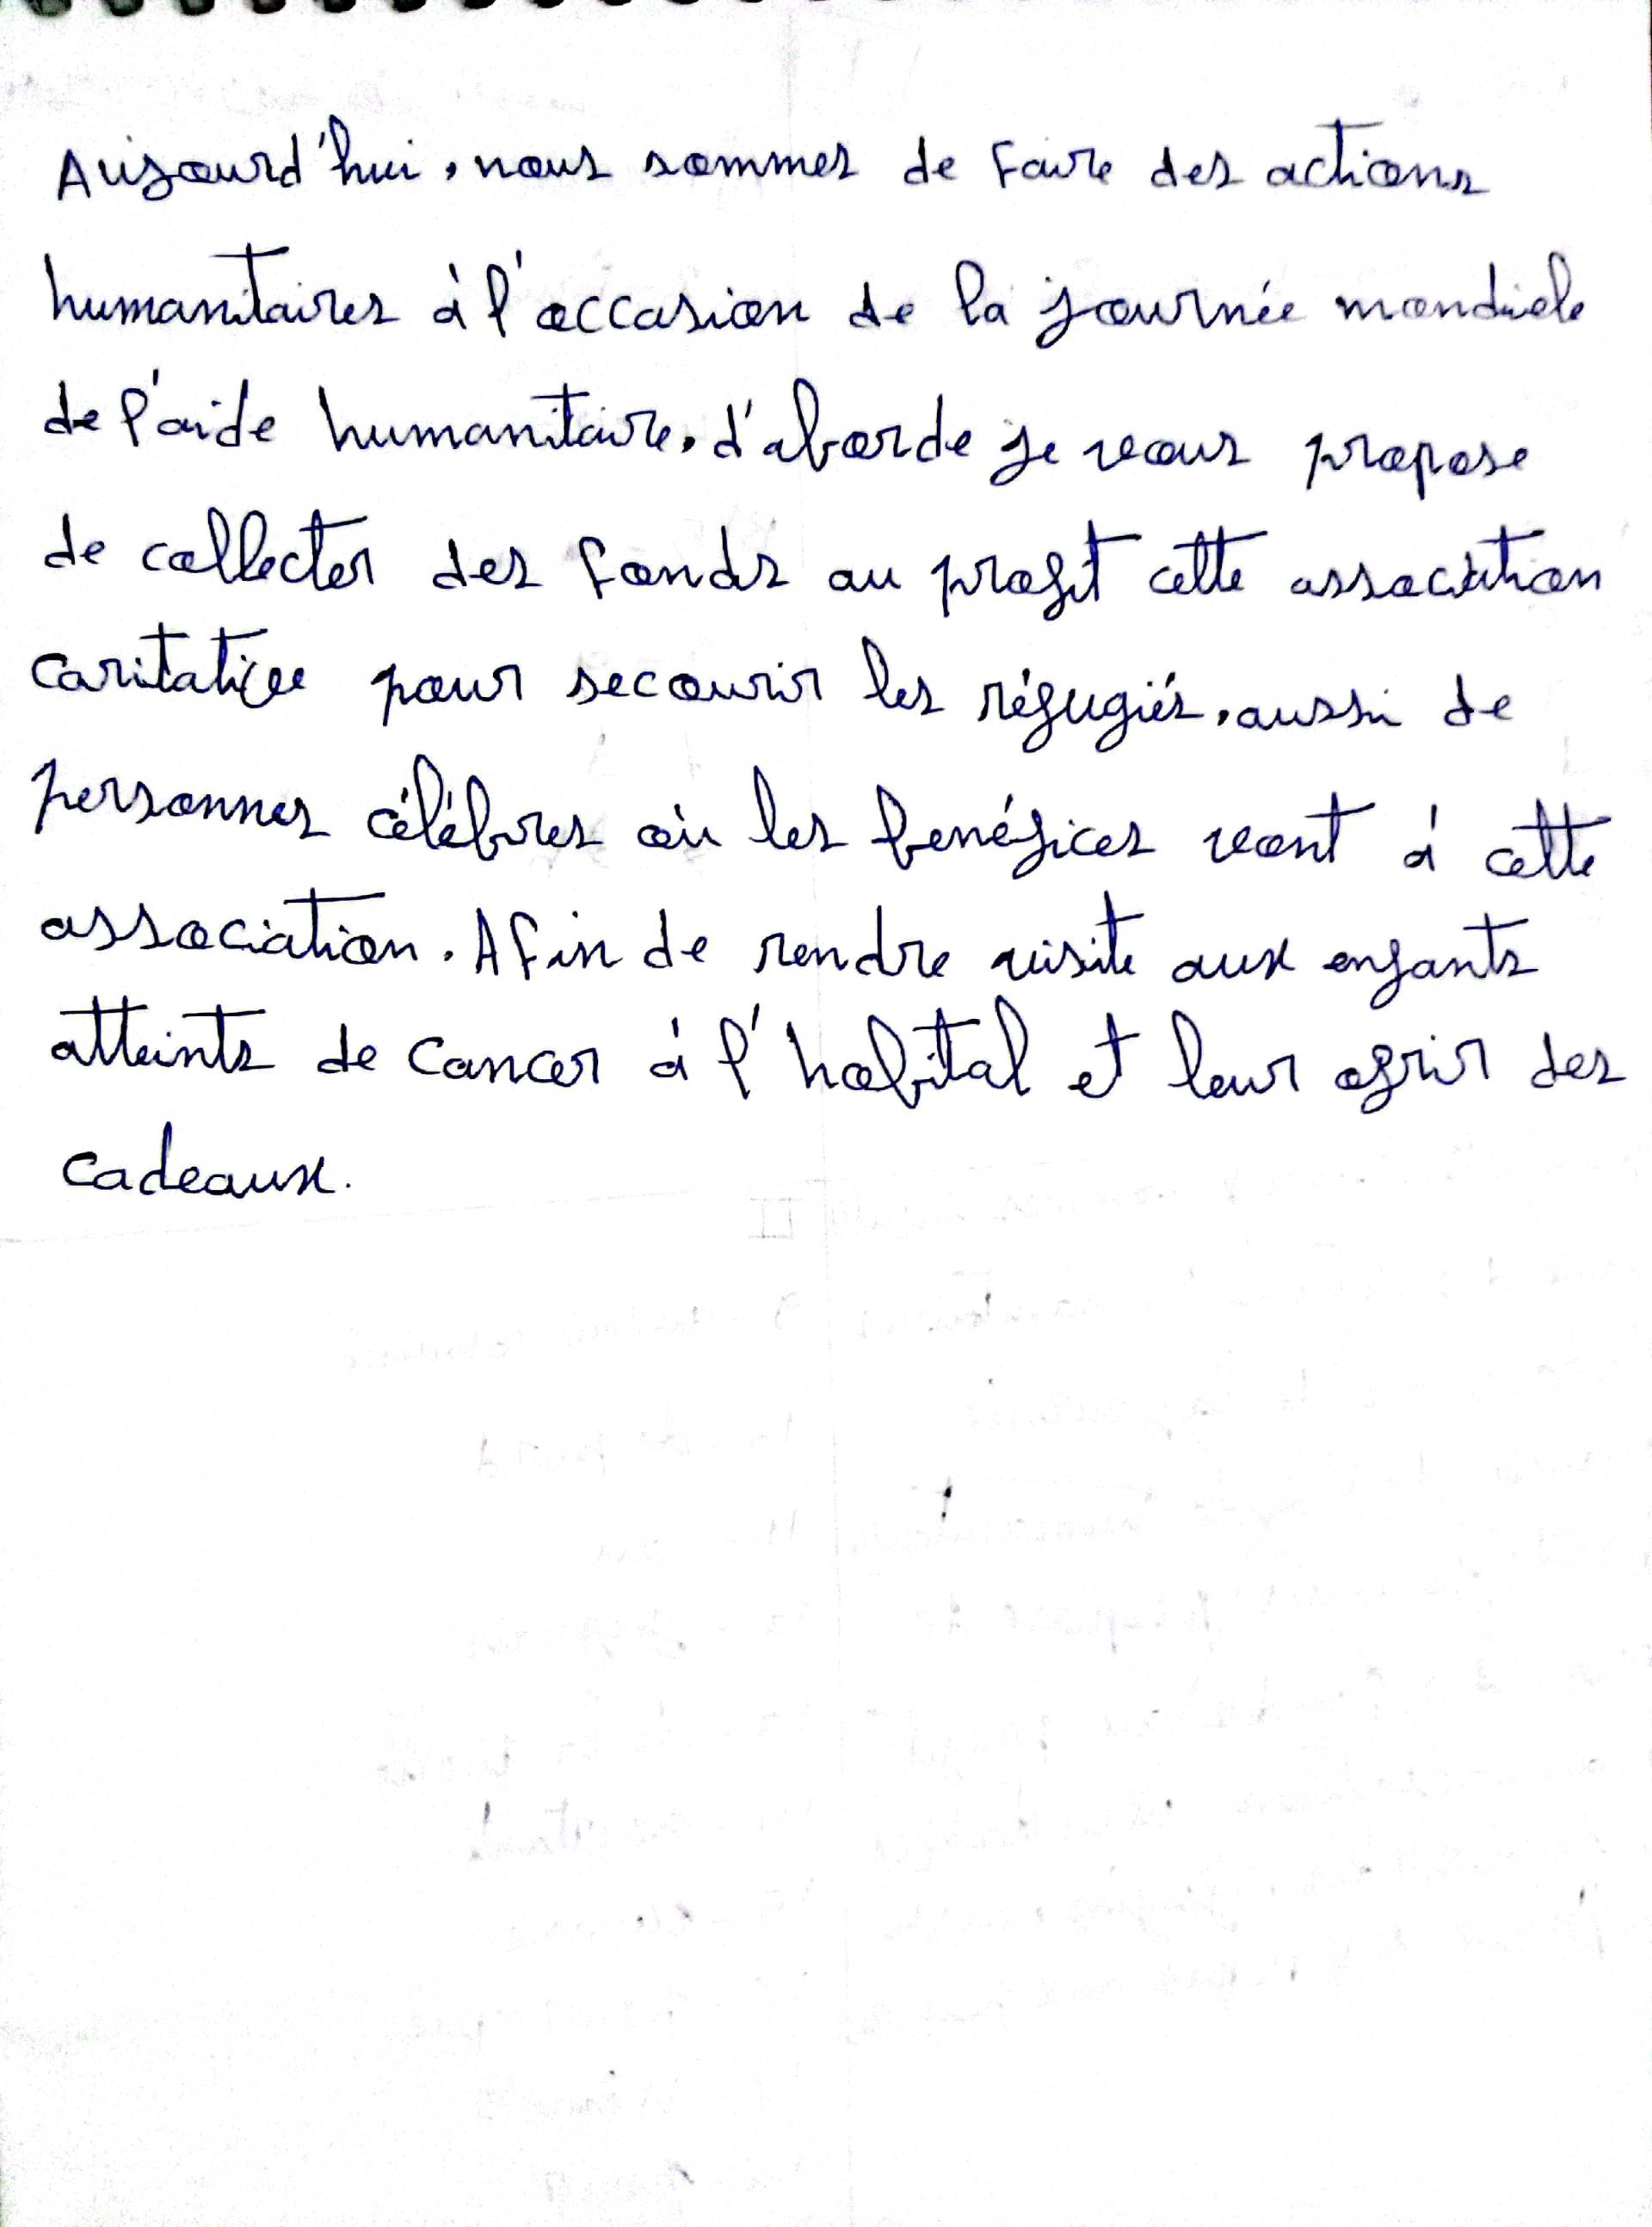 Aujourd'hui, nous sommes de faire des actions
humanitaires à l'occasion de la journée mondiale
de l'aide humanitaire, d'aborde je vous propose
de collecter des fonds au profit cette association
caritative pour secourir les réfugiés, aussi de
personnes célébres où les benéfices vont à cette
association. Afin de rendre visite aux enfants
atteints de cancer à l'hobital et leur ofrir des
cadeaux.